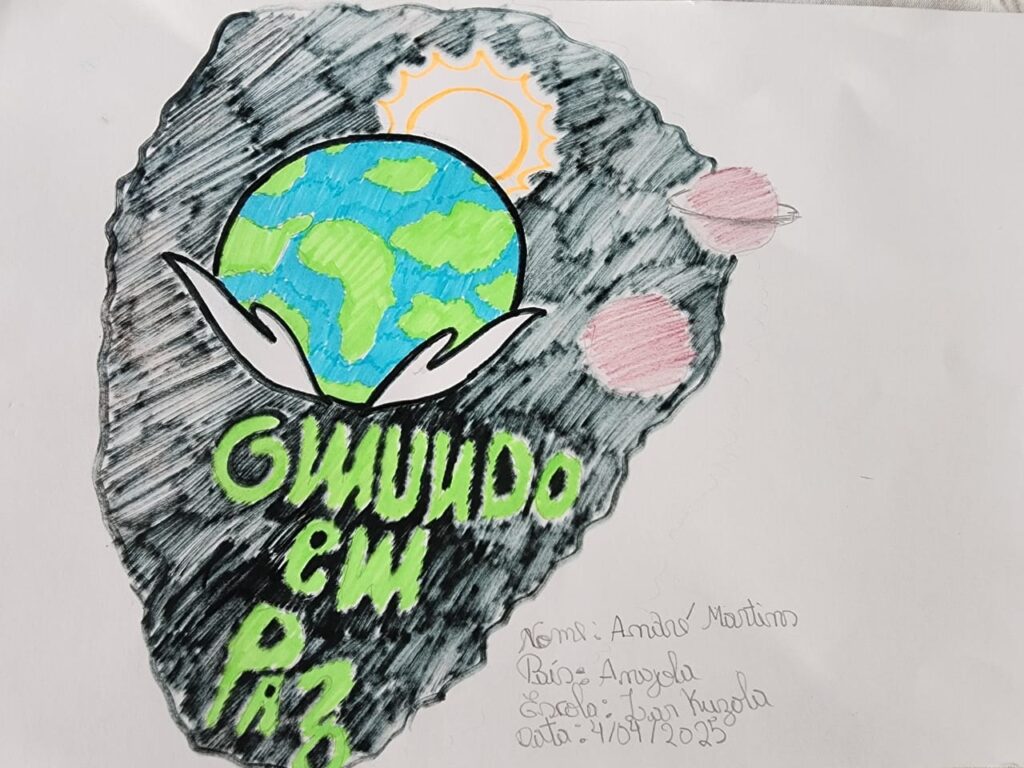 O MUUDO
em
PAZ
Nome: André Martins
País: Angola
Escola: Kuzola
Data: 4/04/2025